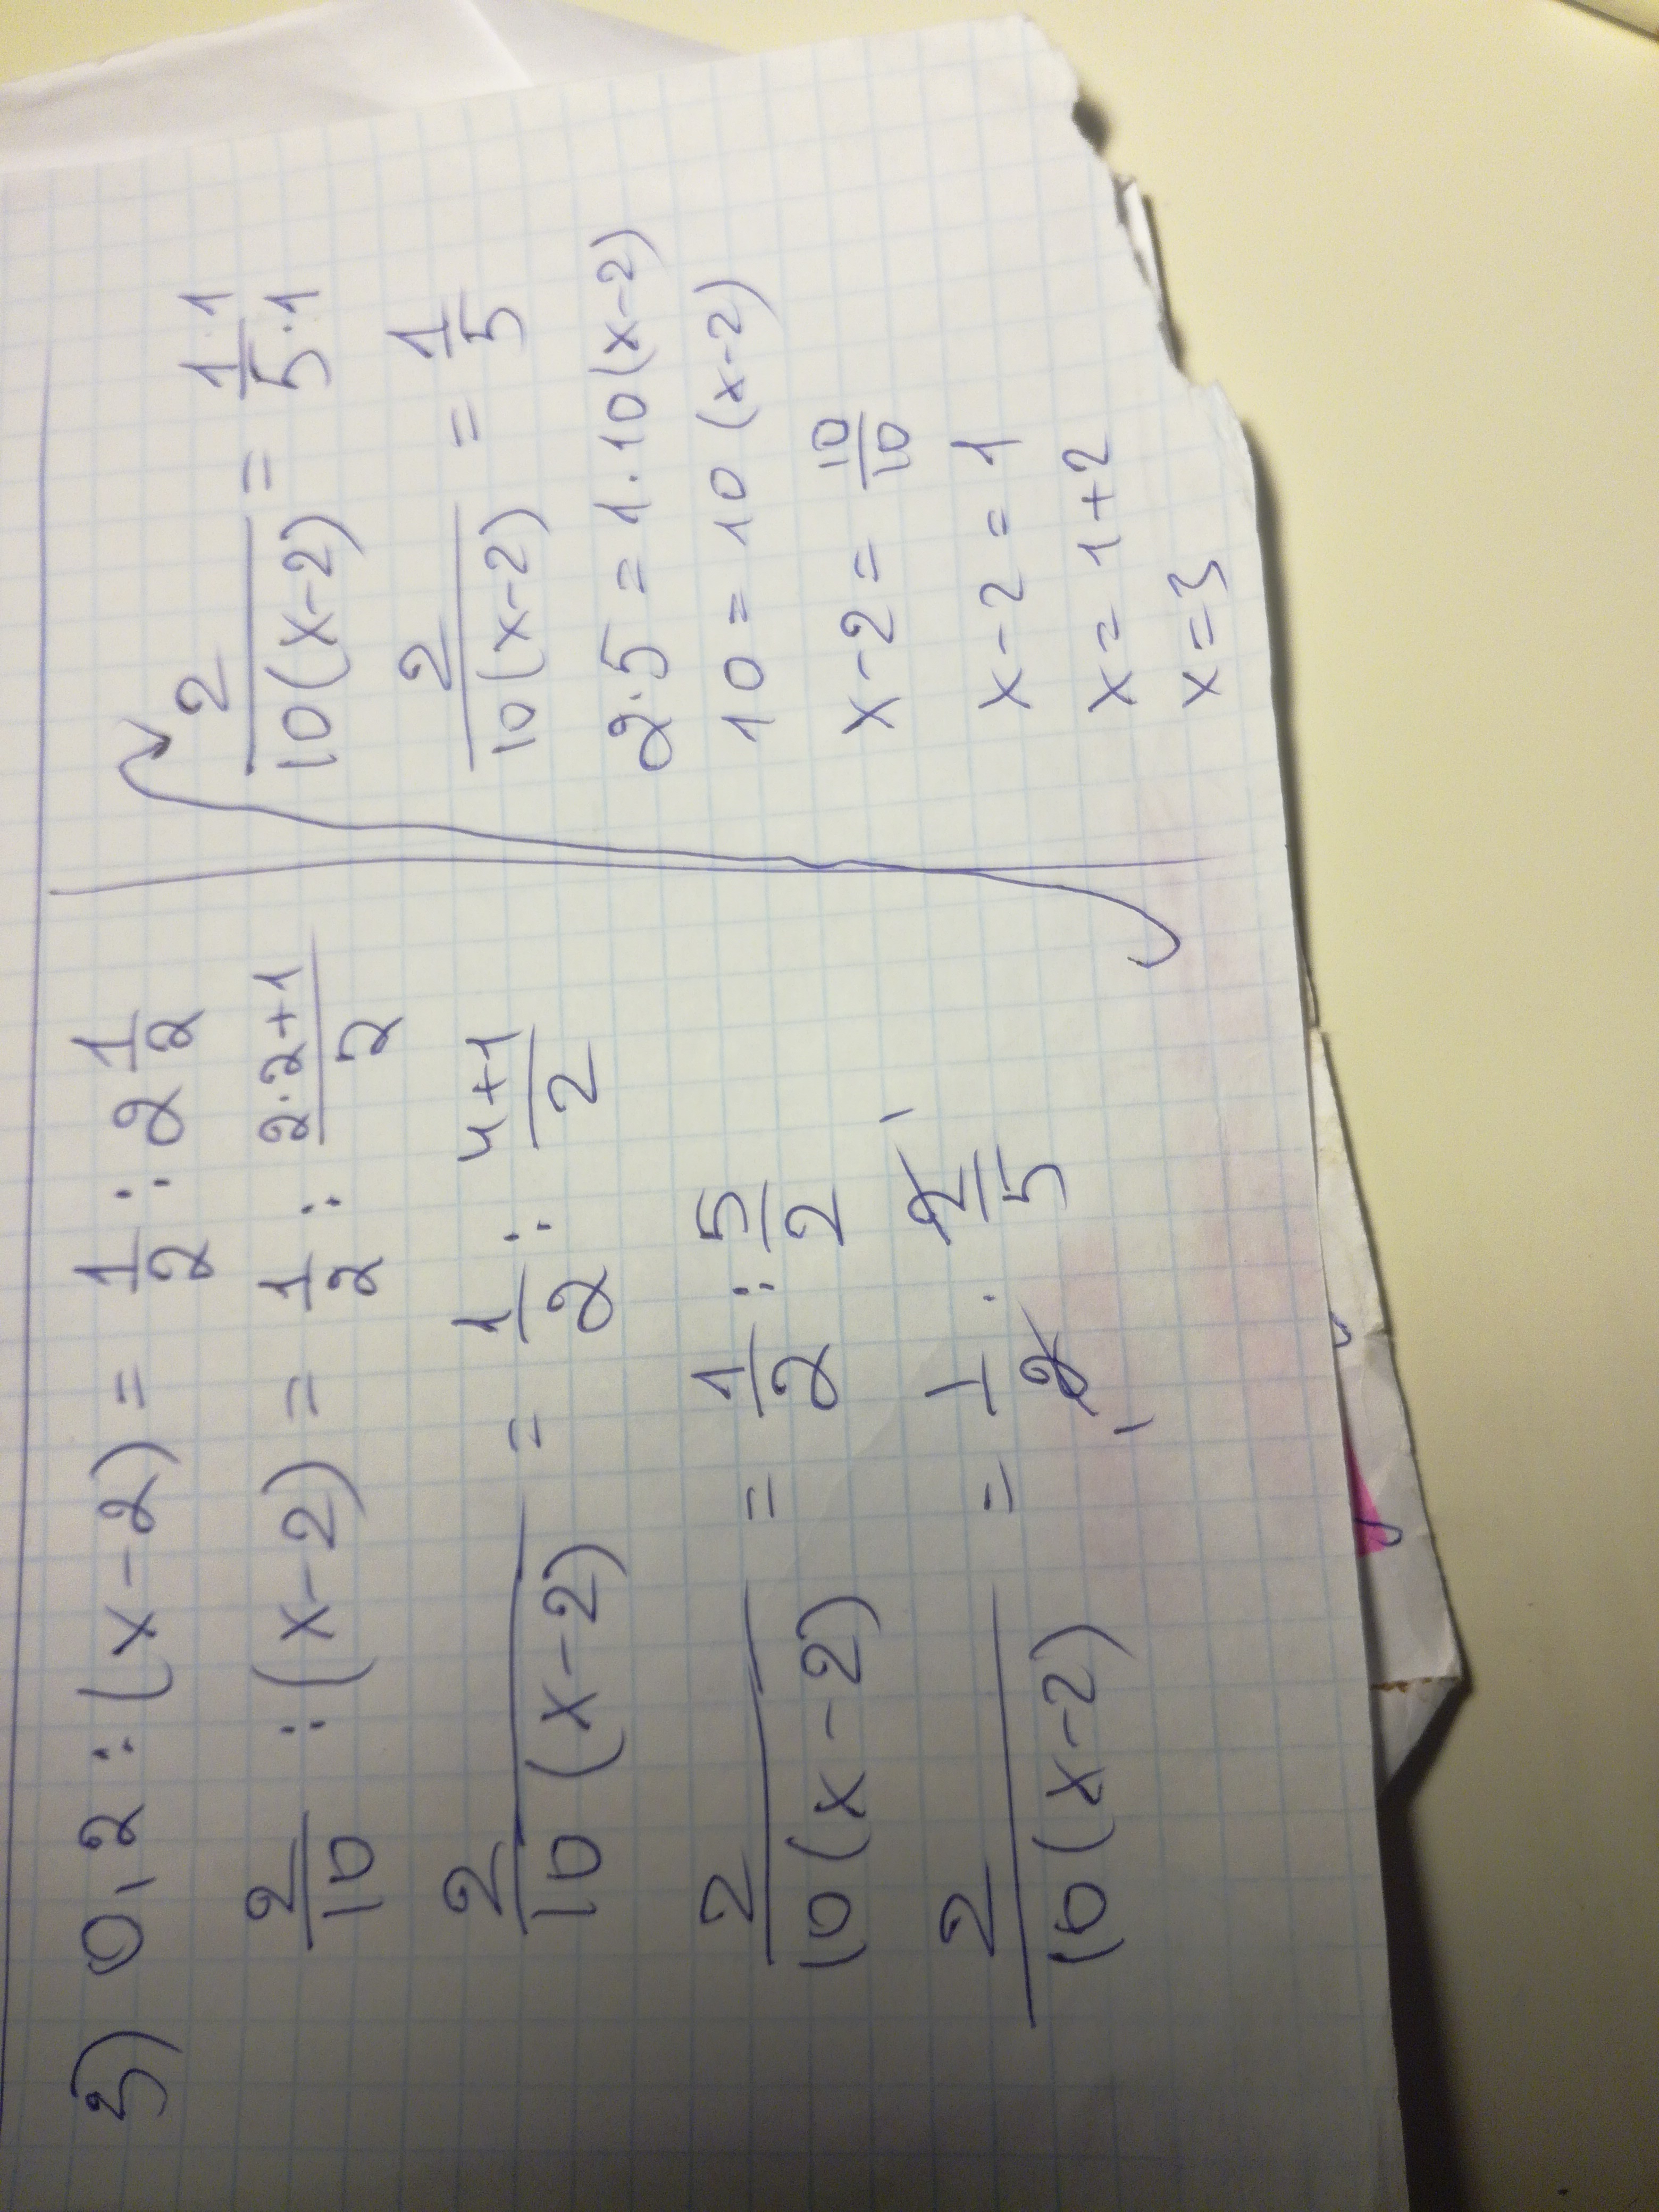 5) 0,2 : (x-2) = 1/2 : 2 1/2
2/10 : (x-2) = 1/2 : (2·2+1)/2
2/10(x-2) = 1/2 : (4+1)/2
2/10(x-2) = 1/2 : 5/2
2/10(x-2) = 1/2 · 2/5
2/10(x-2) = 1·1/5·1
2/10(x-2) = 1/5
2·5 = 1·10(x-2)
10 = 10(x-2)
x-2 = 10/10
x-2 = 1
x = 1+2
x = 3